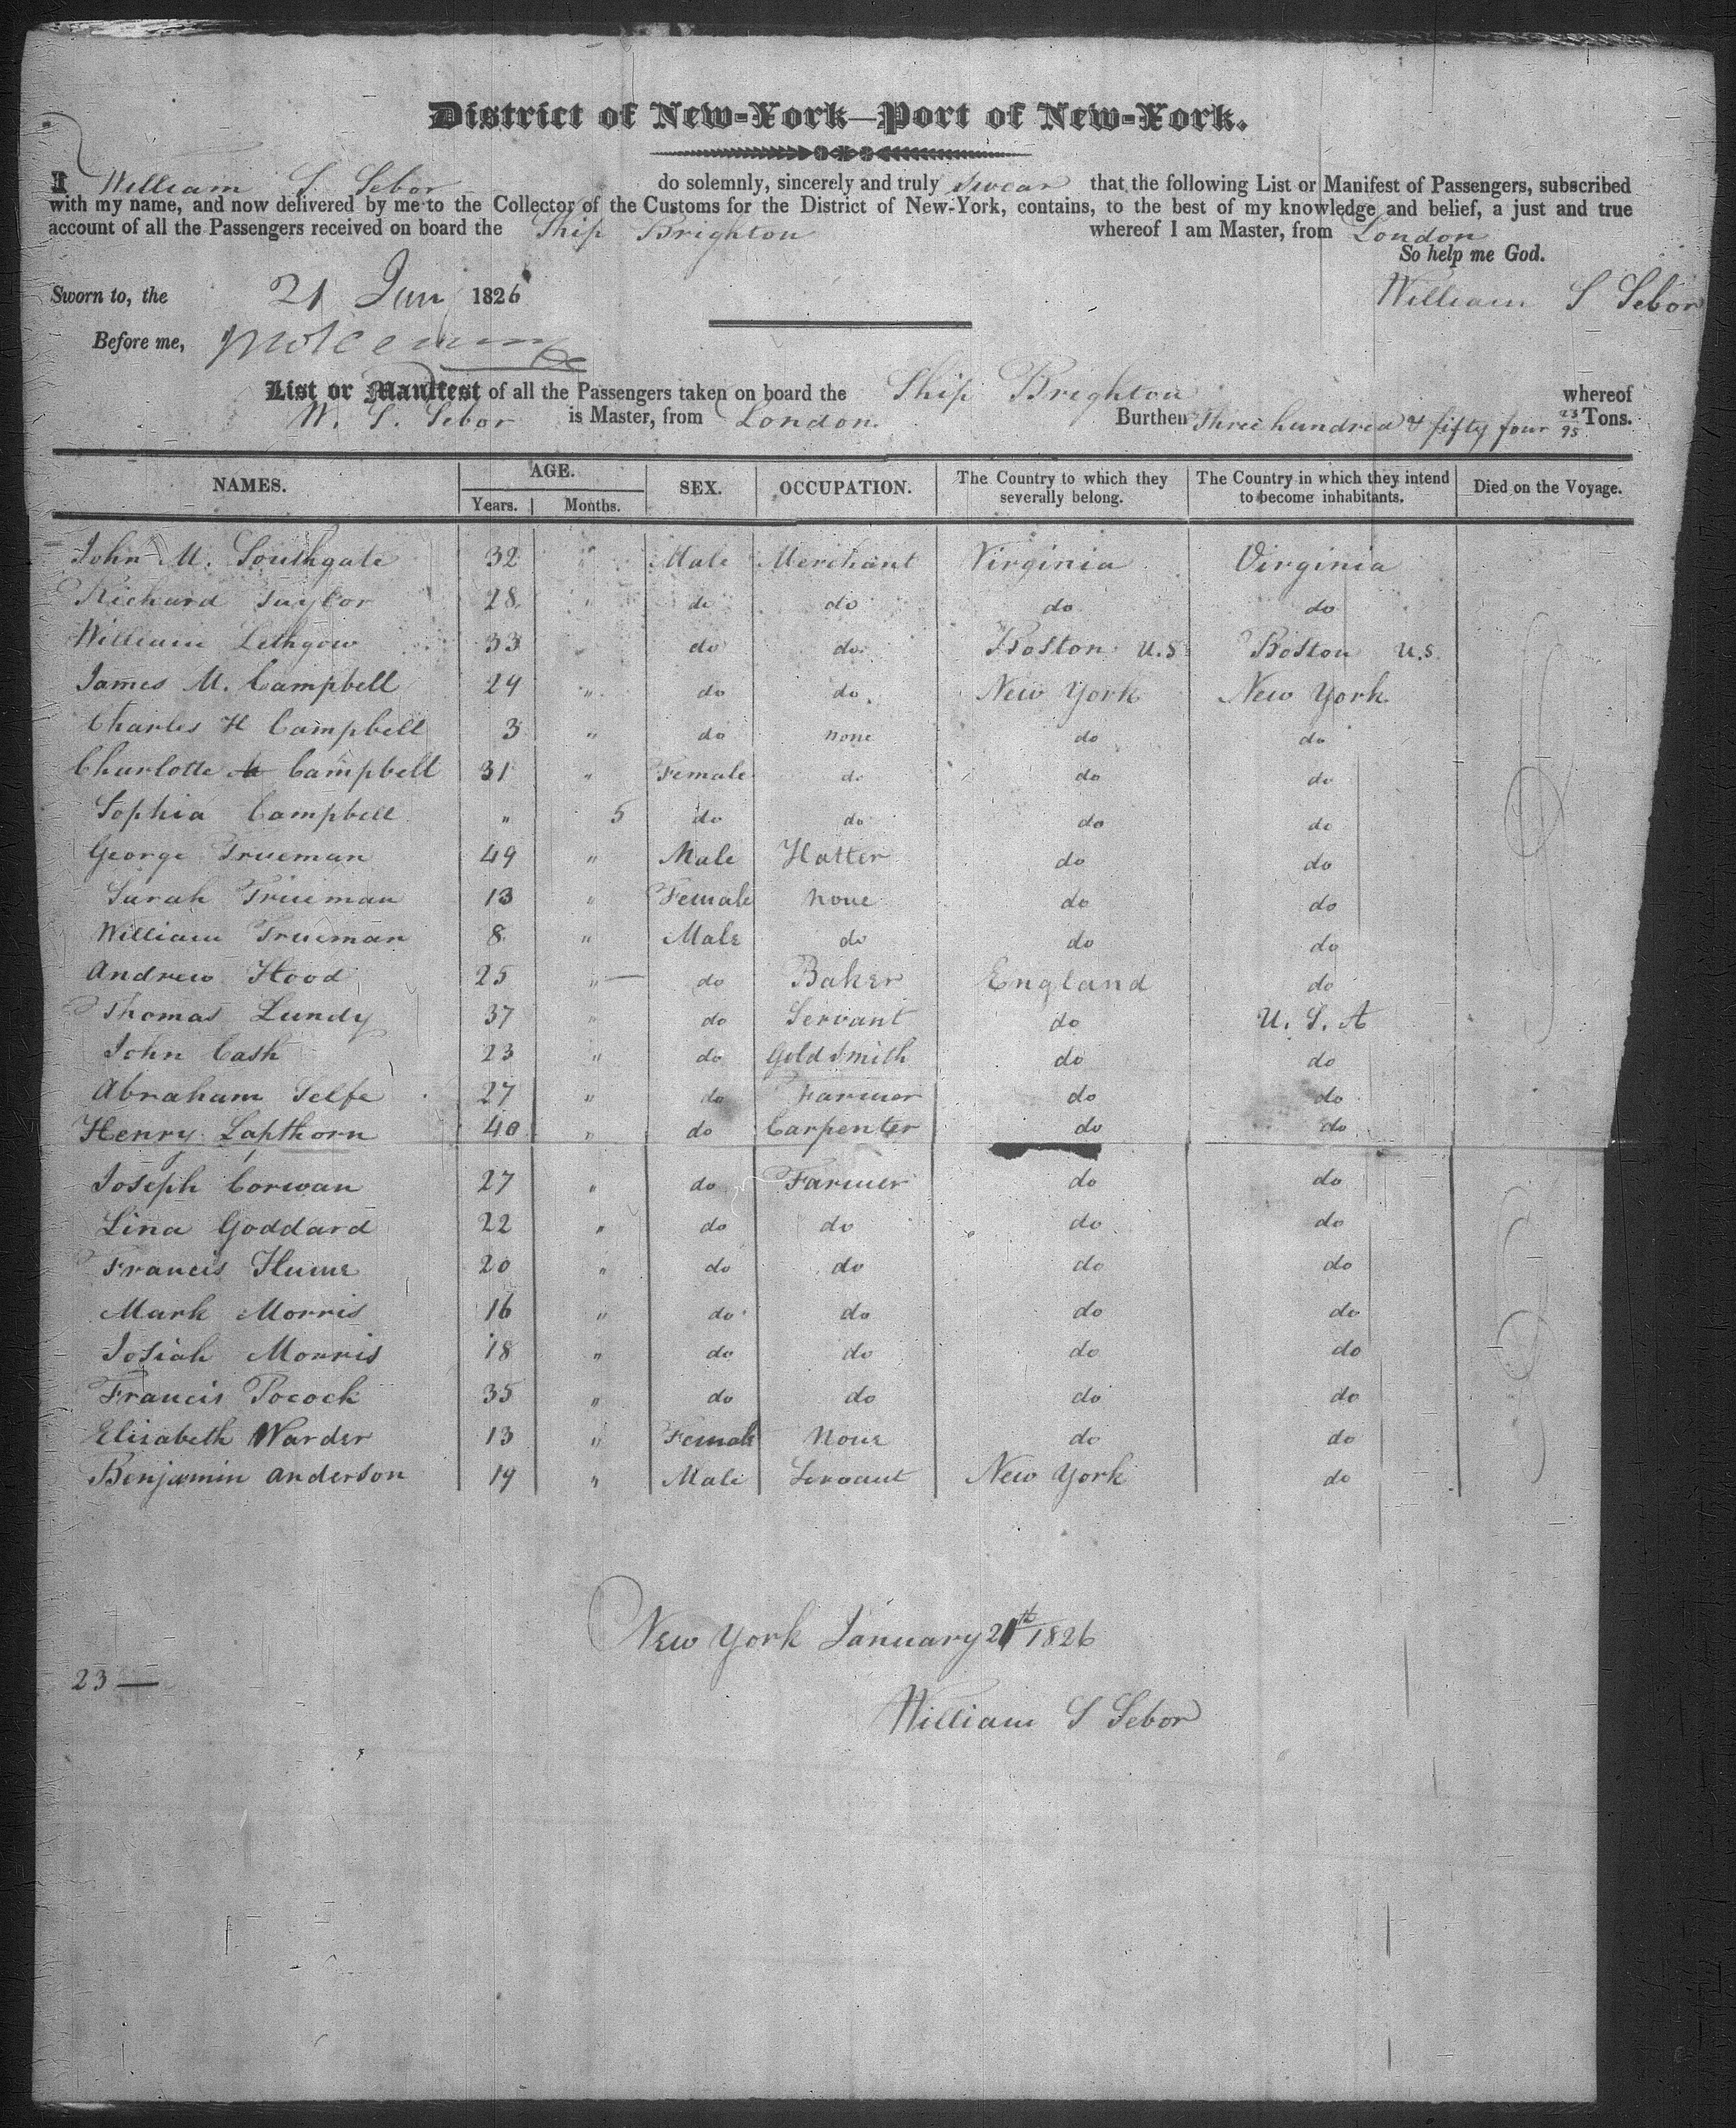 District of New-York—Port of New-York.
I William S. Sebor do solemnly, sincerely and truly swear that the following List or Manifest of Passengers, subscribed
with my name, and now delivered by me to the Collector of the Customs for the District of New-York, contains, to the best of my knowledge and belief, a just and true
account of all the Passengers received on board the Ship Brighton whereof I am Master, from London
So help me God.
Sworn to, the 21 Jan 1826 William S Sebor
Before me,
List or Manifest of all the Passengers taken on board the Ship Brighton whereof
W. S. Sebor is Master, from London. Burthen Three hundred & fifty four 23/95 Tons.
NAMES. AGE. Years. Months. SEX. OCCUPATION. The Country to which they severally belong. The Country in which they intend to become inhabitants. Died on the Voyage.
John M. Southgate 32 " Male Merchant Virginia Virginia
Richard Taylor 28 " do do do do
William Lethgow 33 " do do Boston U.S Boston U.S.
James M. Campbell 24 " do do. New York New York
Charles H Campbell 3 " do none do do
Charlotte Campbell 31 " Female do do do
Sophia Campbell " 5 do do do do
George Trueman 49 " Male Hatter do do
Sarah Trueman 13 " Female None do do
William Trueman 8 " Male do do do
Andrew Hood 25 " — do Baker England do
Thomas Lundy 37 " do Servant do U. S. A
John Cash 23 " do Gold Smith do do
Abraham Selfe 27 " do Farmer do do
Henry Lapthorn 40 " do Carpenter do do
Joseph Corwan 27 " do Farmer do do
Lina Goddard 22 " do do do do
Francis Hume 20 " do do do do
Mark Morris 16 " do do do do
Josiah Morris 18 " do do do do
Francis Pocock 35 " do do do do
Elisabeth Warder 13 " Female None do do
Benjamin Anderson 19 " Male Servant New York do
New York January 21th 1826
23 —
William S Sebor